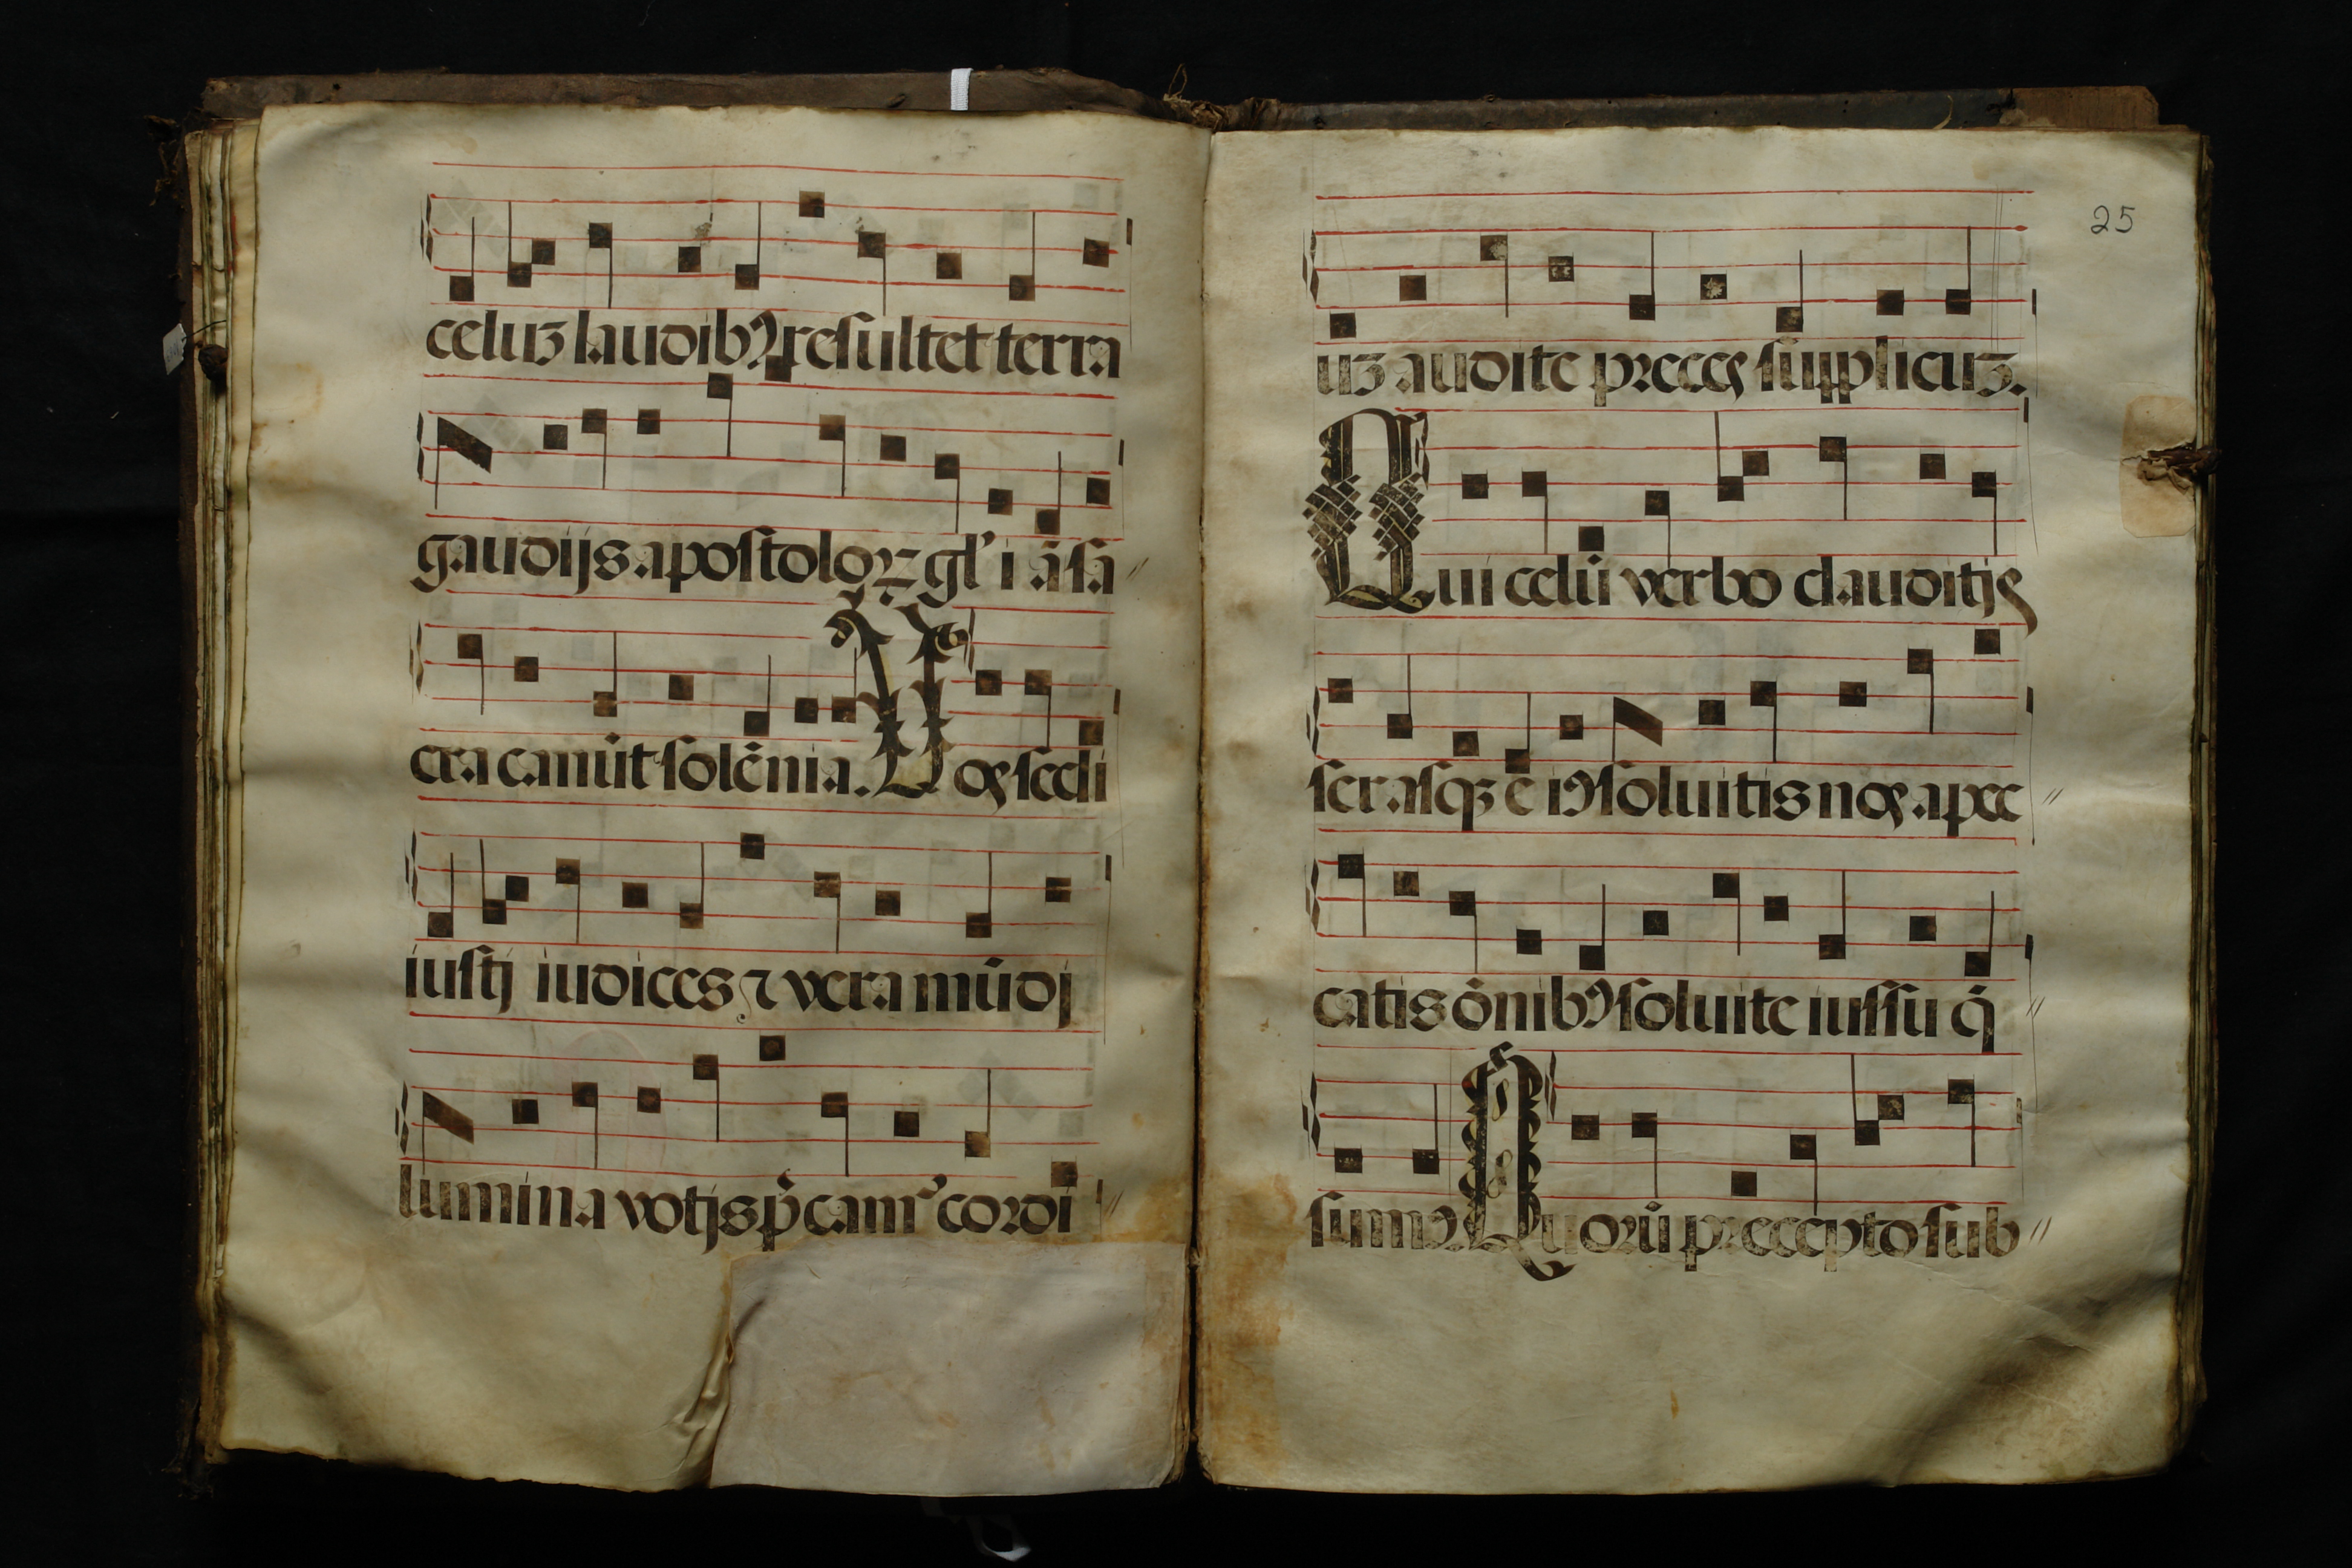 celuz laudibꝯ resultet terra
gaudijs apostoloꝝ gl'iā sa
cra canūt solēnia. Vos secli
iustj iudices ⁊ vera mūdj
lumina votjs p̄camr̕ cordi
25
uz audite preces supplicuz.
Qui celū verbo clauditis
serasqꝫ eiꝯ soluitis nos a pec
catis ōnibꝯ soluite iussu q̄
sumꝯ Quorū precepto sub